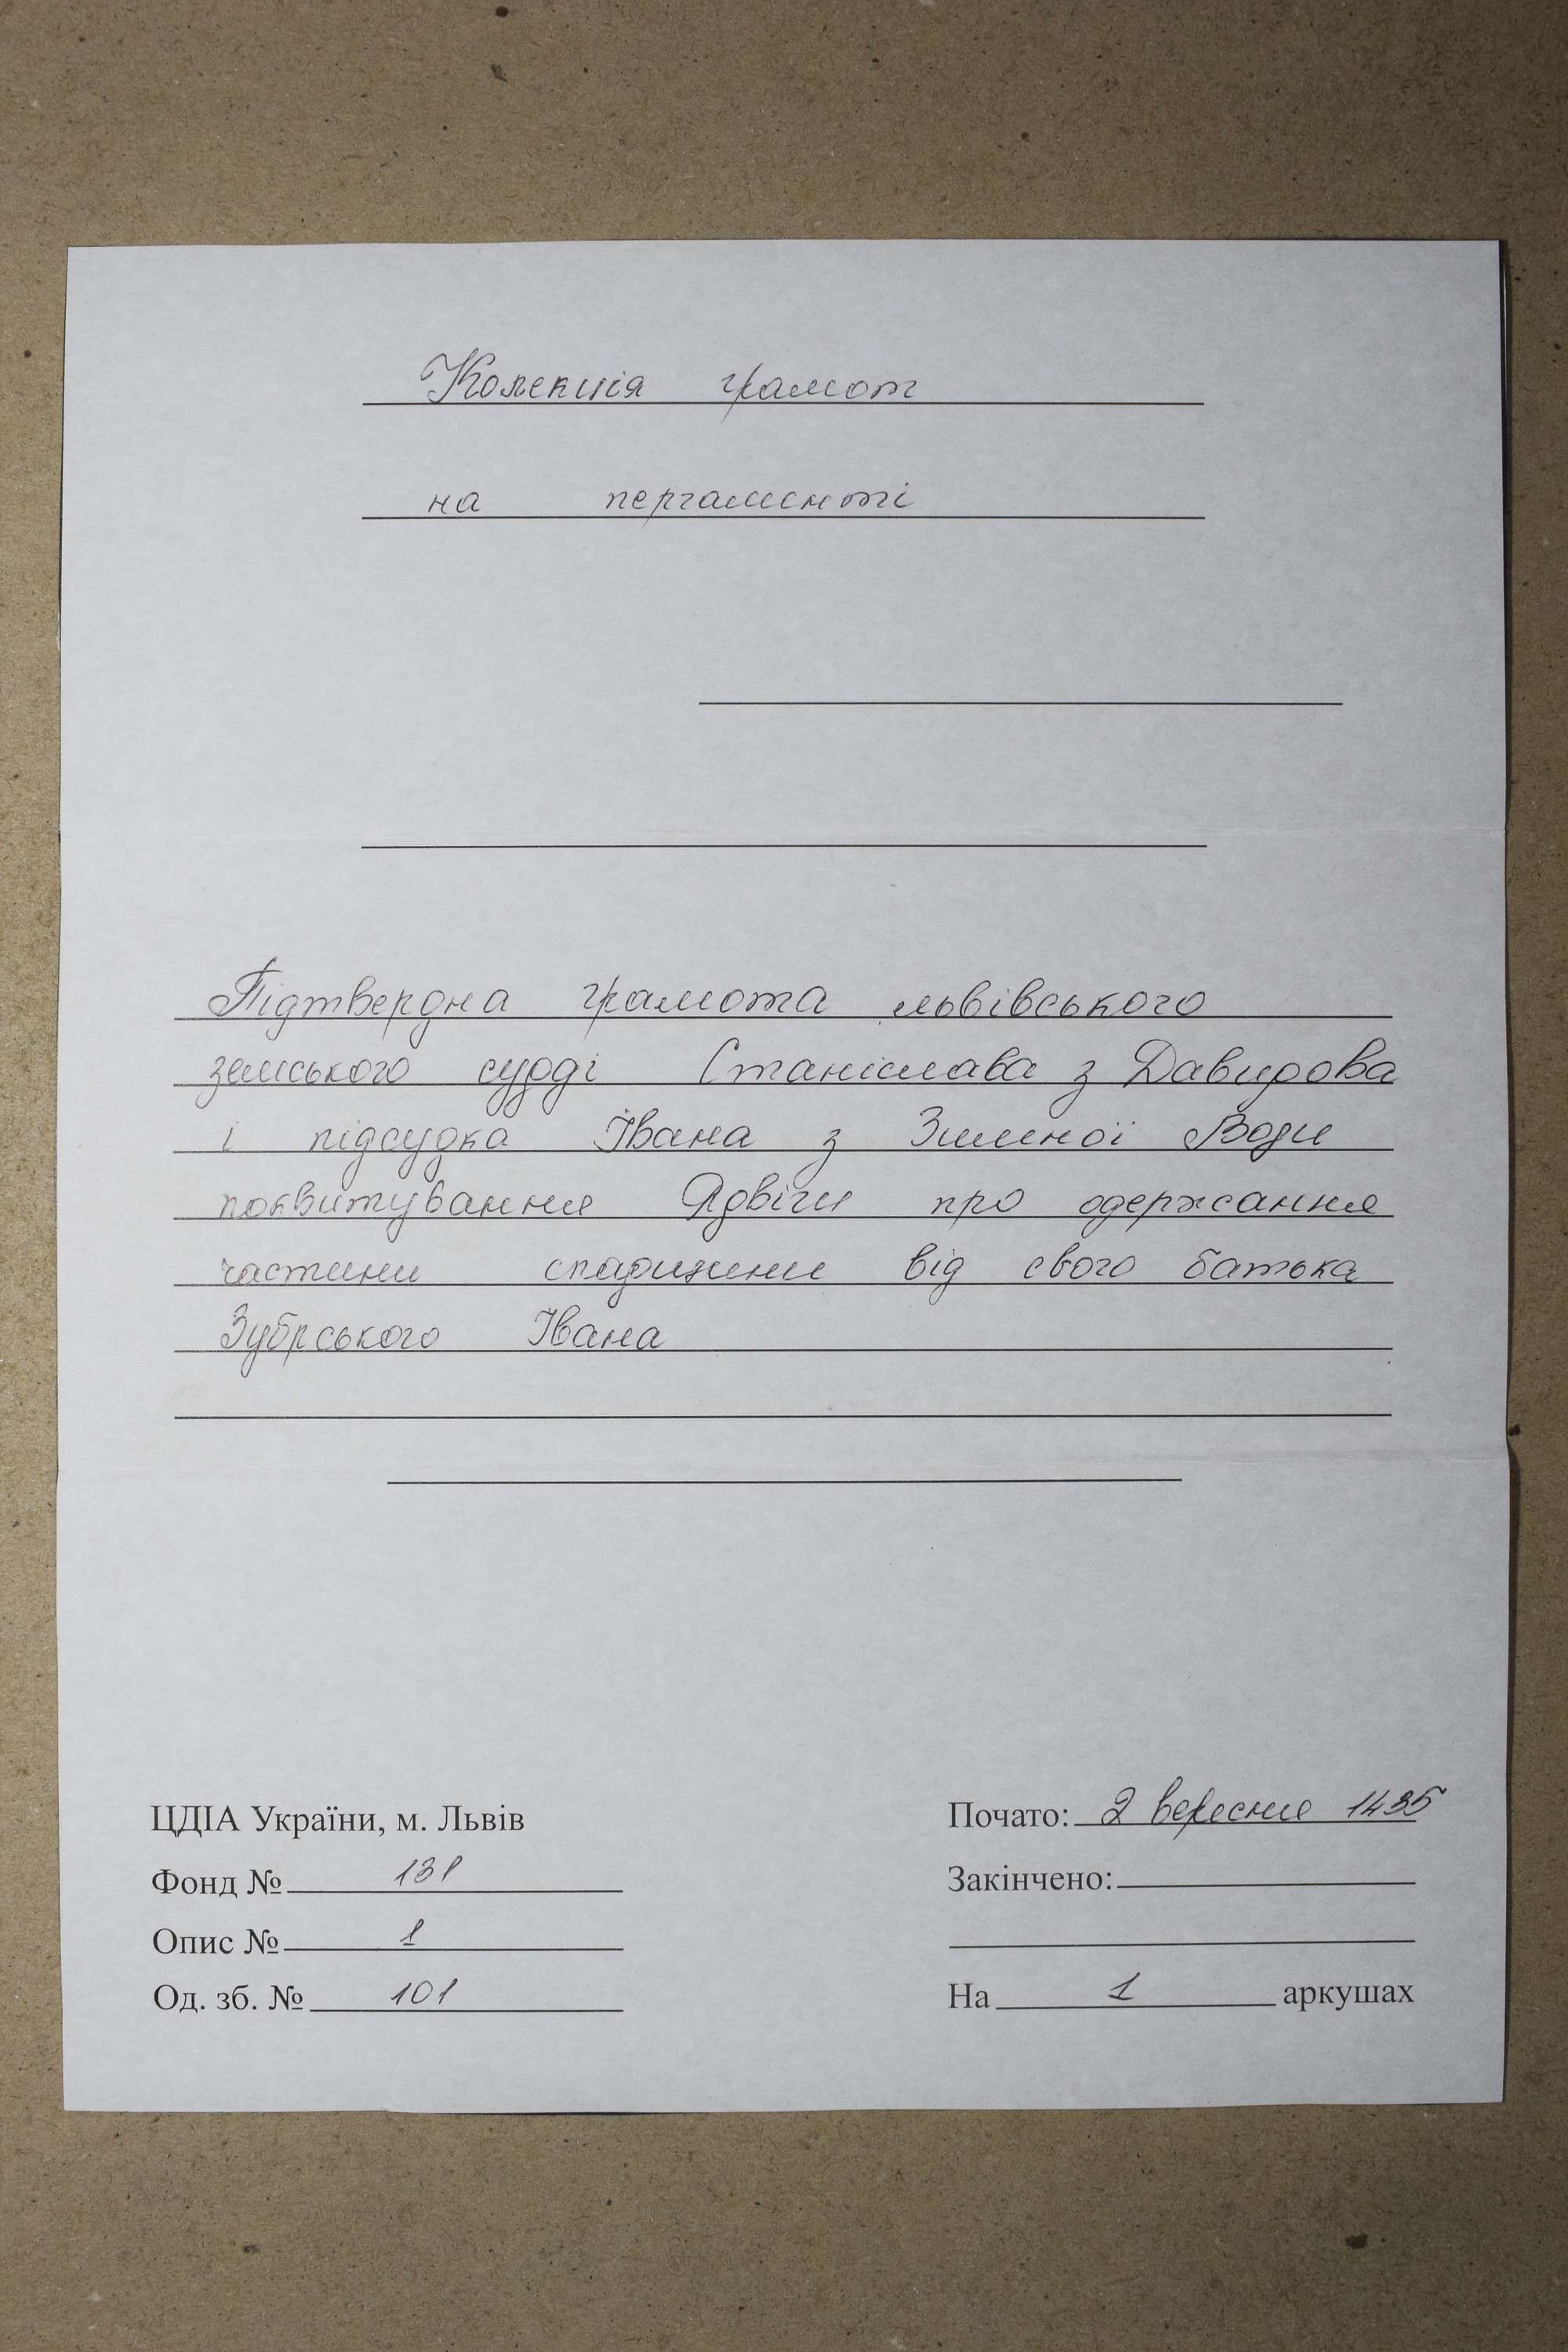 Колекція грамот
на пергаменті
Підтвердна грамота львівського
земського судді Станіслава з Давидова
і підсудка Івана з Зимної Води
поквитування Ядвіги про одержання
частини спадщини від свого батька
Зубрського Івана
ЦДІА України, м. Львів
Фонд № 131
Опис № 1
Од. зб. № 101
Почато: 2 вересня 1435
Закінчено:
На 1 аркушах